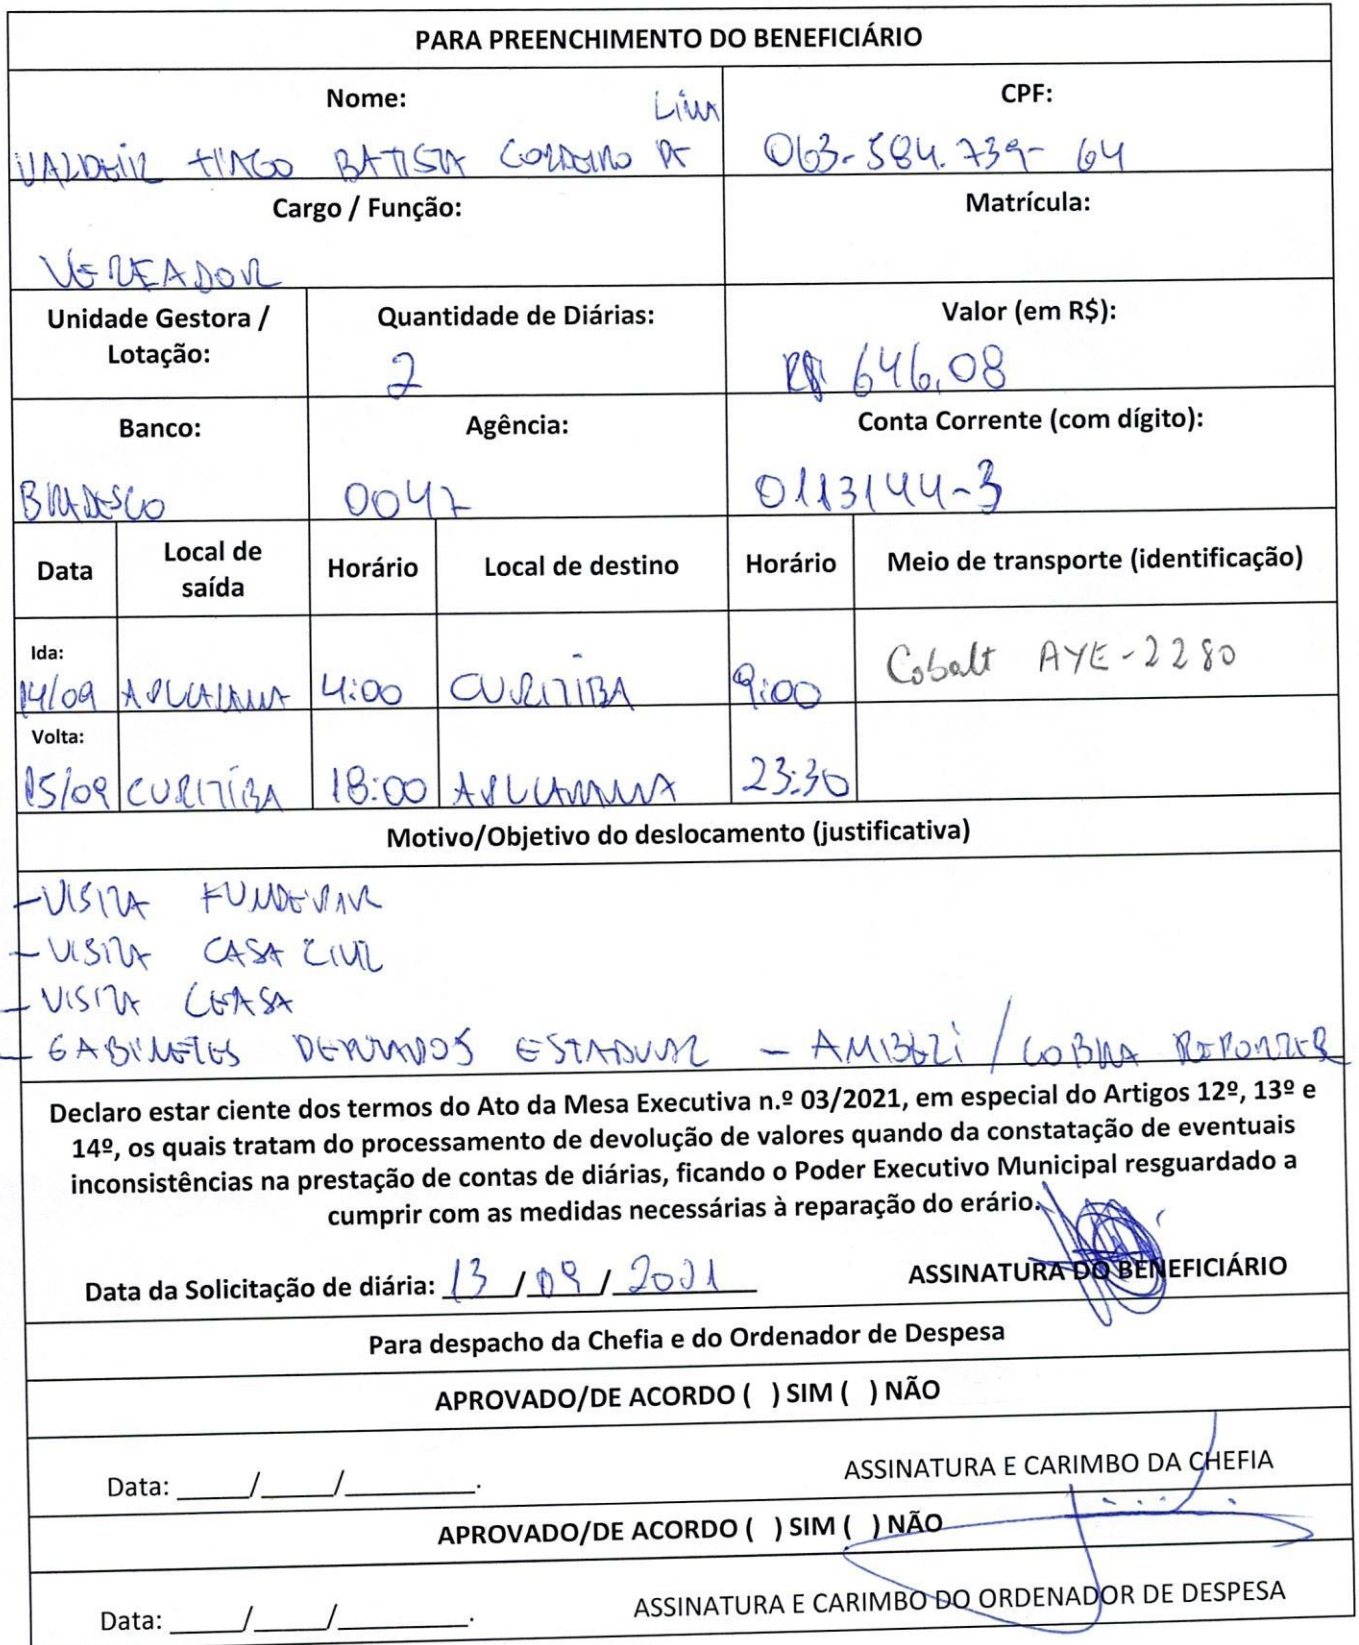 PARA PREENCHIMENTO DO BENEFICIÁRIO
Nome:
CPF:
Lima
VALDEIR TIAGO BATISTA CORDEIRO DE
063-584.739-64
Cargo / Função:
Matrícula:
VEREADOR
Unidade Gestora /
Lotação:
Quantidade de Diárias:
Valor (em R$):
2
R$ 646,08
Banco:
Agência:
Conta Corrente (com dígito):
BRADESCO
0047
0113144-3
Data
Local de
saída
Horário
Local de destino
Horário
Meio de transporte (identificação)
Ida:
14/09 APUCARANA 4:00 CURITIBA 9:00 Cobalt AYE-2280
Volta:
15/09 CURITIBA 18:00 APUCARANA 23:30
Motivo/Objetivo do deslocamento (justificativa)
- VISITA FUNDEPAR
- VISITA CASA CIVIL
- VISITA CEASA
- GABINETES DEPUTADOS ESTADUAL - / COBRA REPORTER
Declaro estar ciente dos termos do Ato da Mesa Executiva n.º 03/2021, em especial do Artigos 12º, 13º e
14º, os quais tratam do processamento de devolução de valores quando da constatação de eventuais
inconsistências na prestação de contas de diárias, ficando o Poder Executivo Municipal resguardado a
cumprir com as medidas necessárias à reparação do erário.
Data da Solicitação de diária: 13 / 09 / 2021
ASSINATURA DO BENEFICIÁRIO
Para despacho da Chefia e do Ordenador de Despesa
APROVADO/DE ACORDO ( ) SIM ( ) NÃO
Data: _____/_____/_________.
ASSINATURA E CARIMBO DA CHEFIA
APROVADO/DE ACORDO ( ) SIM ( ) NÃO
Data: _____/_____/_________.
ASSINATURA E CARIMBO DO ORDENADOR DE DESPESA